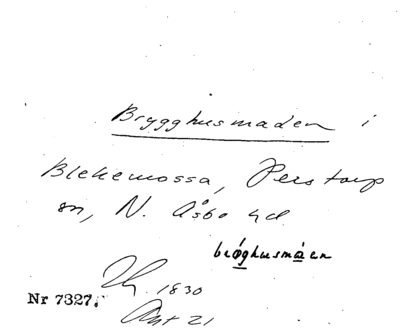 Brygghusmaden i
Blekemossa, Perstorp
sn, N. Åsbo hd.
brøghusmaen
1830
Nr 7327.
Ant 21